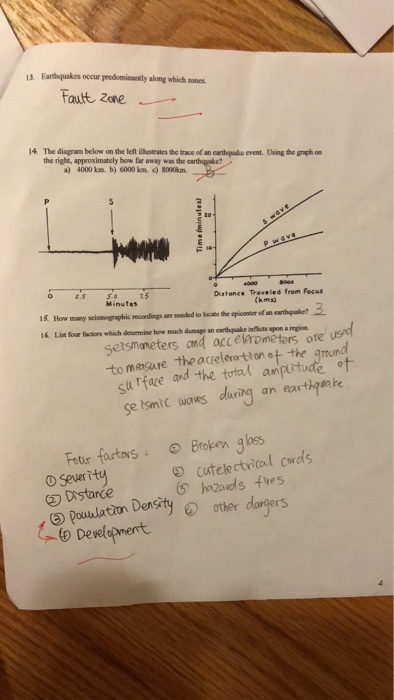 13. Earthquakes occur predominantly along which zones.
Fault Zone
14. The diagram below on the left illustrates the trace of an earthquake event. Using the graph on
the right, approximately how far away was the earthquake?
a) 4000 km. b) 6000 km. c) 8000km. B
P S
0 2.5 5.0 7.5
Minutes
Time (minutes)
20
10
0
S wave
P wave
0 4000 8000
Distance Traveled from Focus
(kms)
15. How many seismographic recordings are needed to locate the epicenter of an earthquake? 3
16. List four factors which determine how much damage an earthquake inflicts upon a region.
seismometers and accelerometers are used
to measure the acceleration of the ground
surface and the total amplitude of
seismic waves during an earthquake.
Four factors :
① Severity
② Distance
③ Pouulation Density
④ Development
① Broken glass
② cutelectrical cords
③ hazards fires
④ other dangers
4